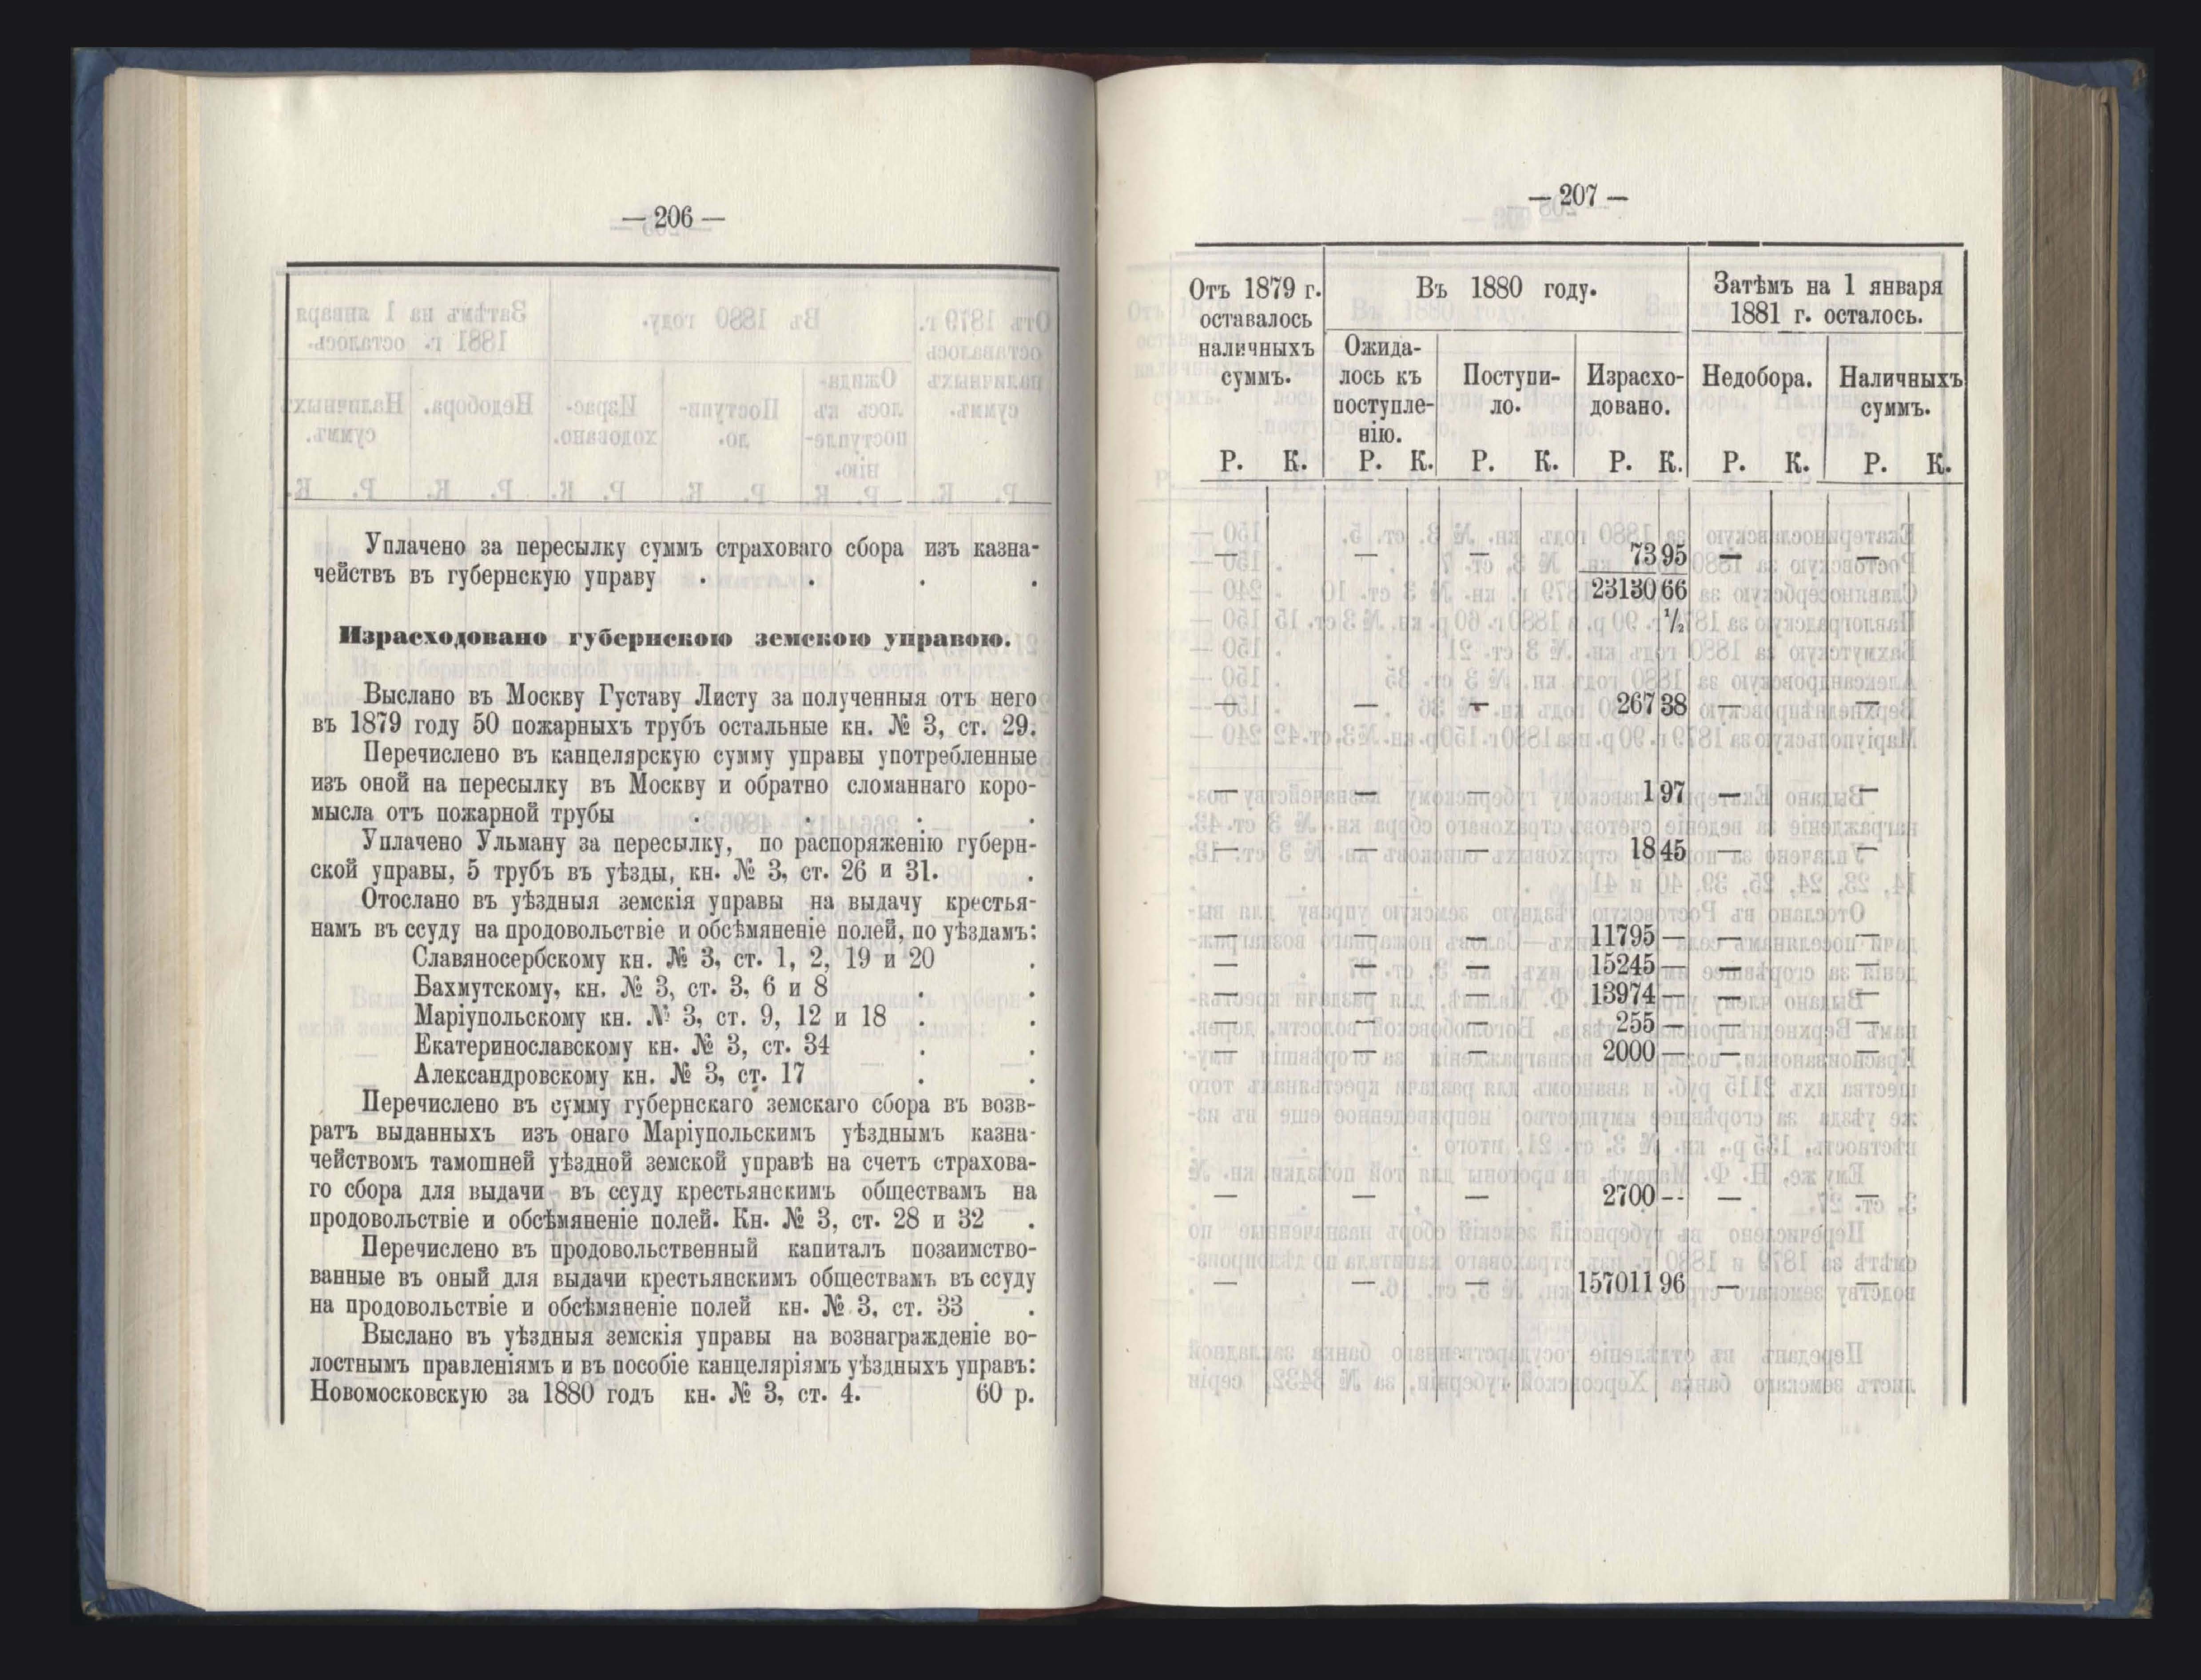 — 206 —
Уплачено за пересылку суммъ страховаго сбора изъ казна-
чействъ въ губернскую управу . . . .
Израсходовано губернскою земскою управою.
Выслано въ Москву Густаву Листу за полученныя отъ него
въ 1879 году 50 пожарныхъ трубъ остальные кн. № 3, ст. 29.
Перечислено въ канцелярскую сумму управы употребленные
изъ оной на пересылку въ Москву и обратно сломаннаго коро-
мысла отъ пожарной трубы . . . .
Уплачено Ульману за пересылку, по распоряженію губерн-
ской управы, 5 трубъ въ уѣзды, кн. № 3, ст. 26 и 31. .
Отослано въ уѣздныя земскія управы на выдачу крестья-
намъ въ ссуду на продовольствіе и обсѣмяненіе полей, по уѣздамъ:
Славяносербскому кн. № 3, ст. 1, 2, 19 и 20 .
Бахмутскому, кн. № 3, ст. 3, 6 и 8 . .
Маріупольскому кн. № 3, ст. 9, 12 и 18 . .
Екатеринославскому кн. № 3, ст. 34 . .
Александровскому кн. № 3, ст. 17 . .
Перечислено въ сумму губернскаго земскаго сбора въ возв-
ратъ выданныхъ изъ онаго Маріупольскимъ уѣзднымъ казна-
чействомъ тамошней уѣздной земской управѣ на счетъ страхова-
го сбора для выдачи въ ссуду крестьянскимъ обществамъ на
продовольствіе и обсѣмяненіе полей. Кн. № 3, ст. 28 и 32 .
Перечислено въ продовольственный капиталъ позаимство-
ванные въ оный для выдачи крестьянскимъ обществамъ въ ссуду
на продовольствіе и обсѣмяненіе полей кн. № 3, ст. 33 .
Выслано въ уѣздныя земскія управы на вознагражденіе во-
лостнымъ правленіямъ и въ пособіе канцеляріямъ уѣздныхъ управъ:
Новомосковскую за 1880 годъ кн. № 3, ст. 4. 60 р.
— 207 —
Отъ 1879 г.
оставалось
наличныхъ
суммъ.
Въ 1880 году.
Затѣмъ на 1 января
1881 г. осталось.
Ожида-
лось къ
поступле-
нію.
Поступи-
ло.
Израсхо-
довано.
Недобора.
Наличныхъ
суммъ.
Р. К. Р. К. Р. К. Р. К. Р. К. Р. К.
— — — 73 95 — —
23130 66
½
— — — 267 38 — —
— — — 1 97 — —
— — — 18 45 — —
— — — 11795 — — —
— — — 15245 — — —
— — — 13974 — — —
— — — 255 — — —
— — — 2000 — — —
— — — 2700 -- — —
— — — 157011 96 — —